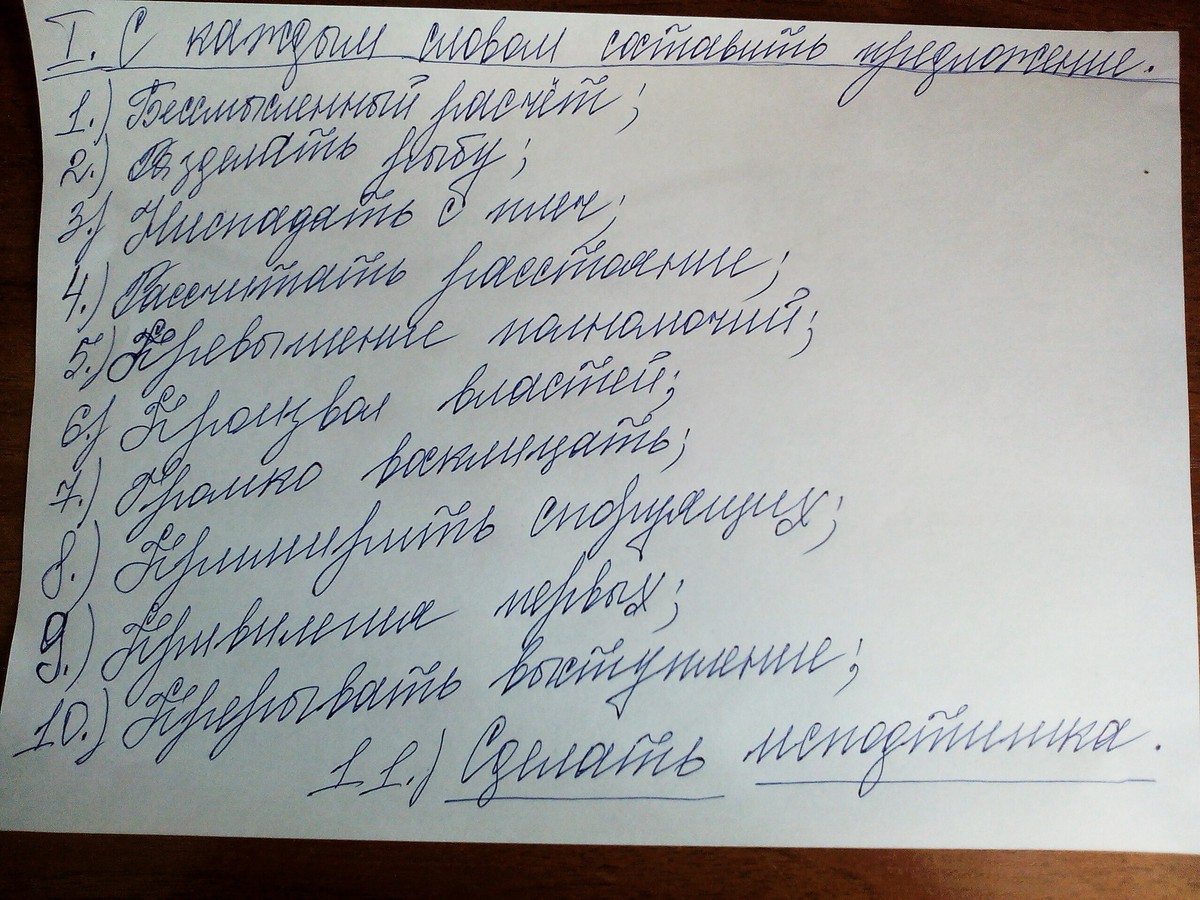 I. С каждым словом составить предложение.
1.) Бессмысленный расчёт;
2.) Разделать рыбу;
3.) Ниспадать с плеч;
4.) Рассчитать расстояние;
5.) Превышение полномочий;
6.) Произвол властей;
7.) Громко восклицать;
8.) Примирить спорящих;
9.) Привилегия первых;
10.) Прерывать выступление;
11.) Сделать исподтишка.